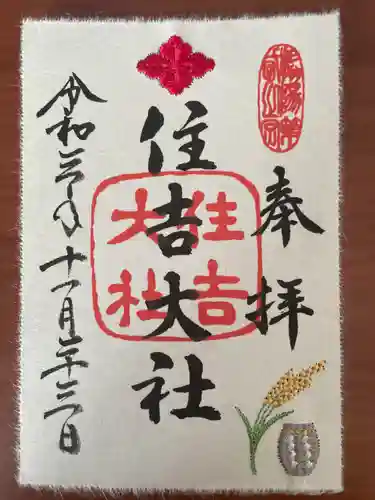 奉拝
住吉大社
住吉
大社
令和三年十一月二十三日